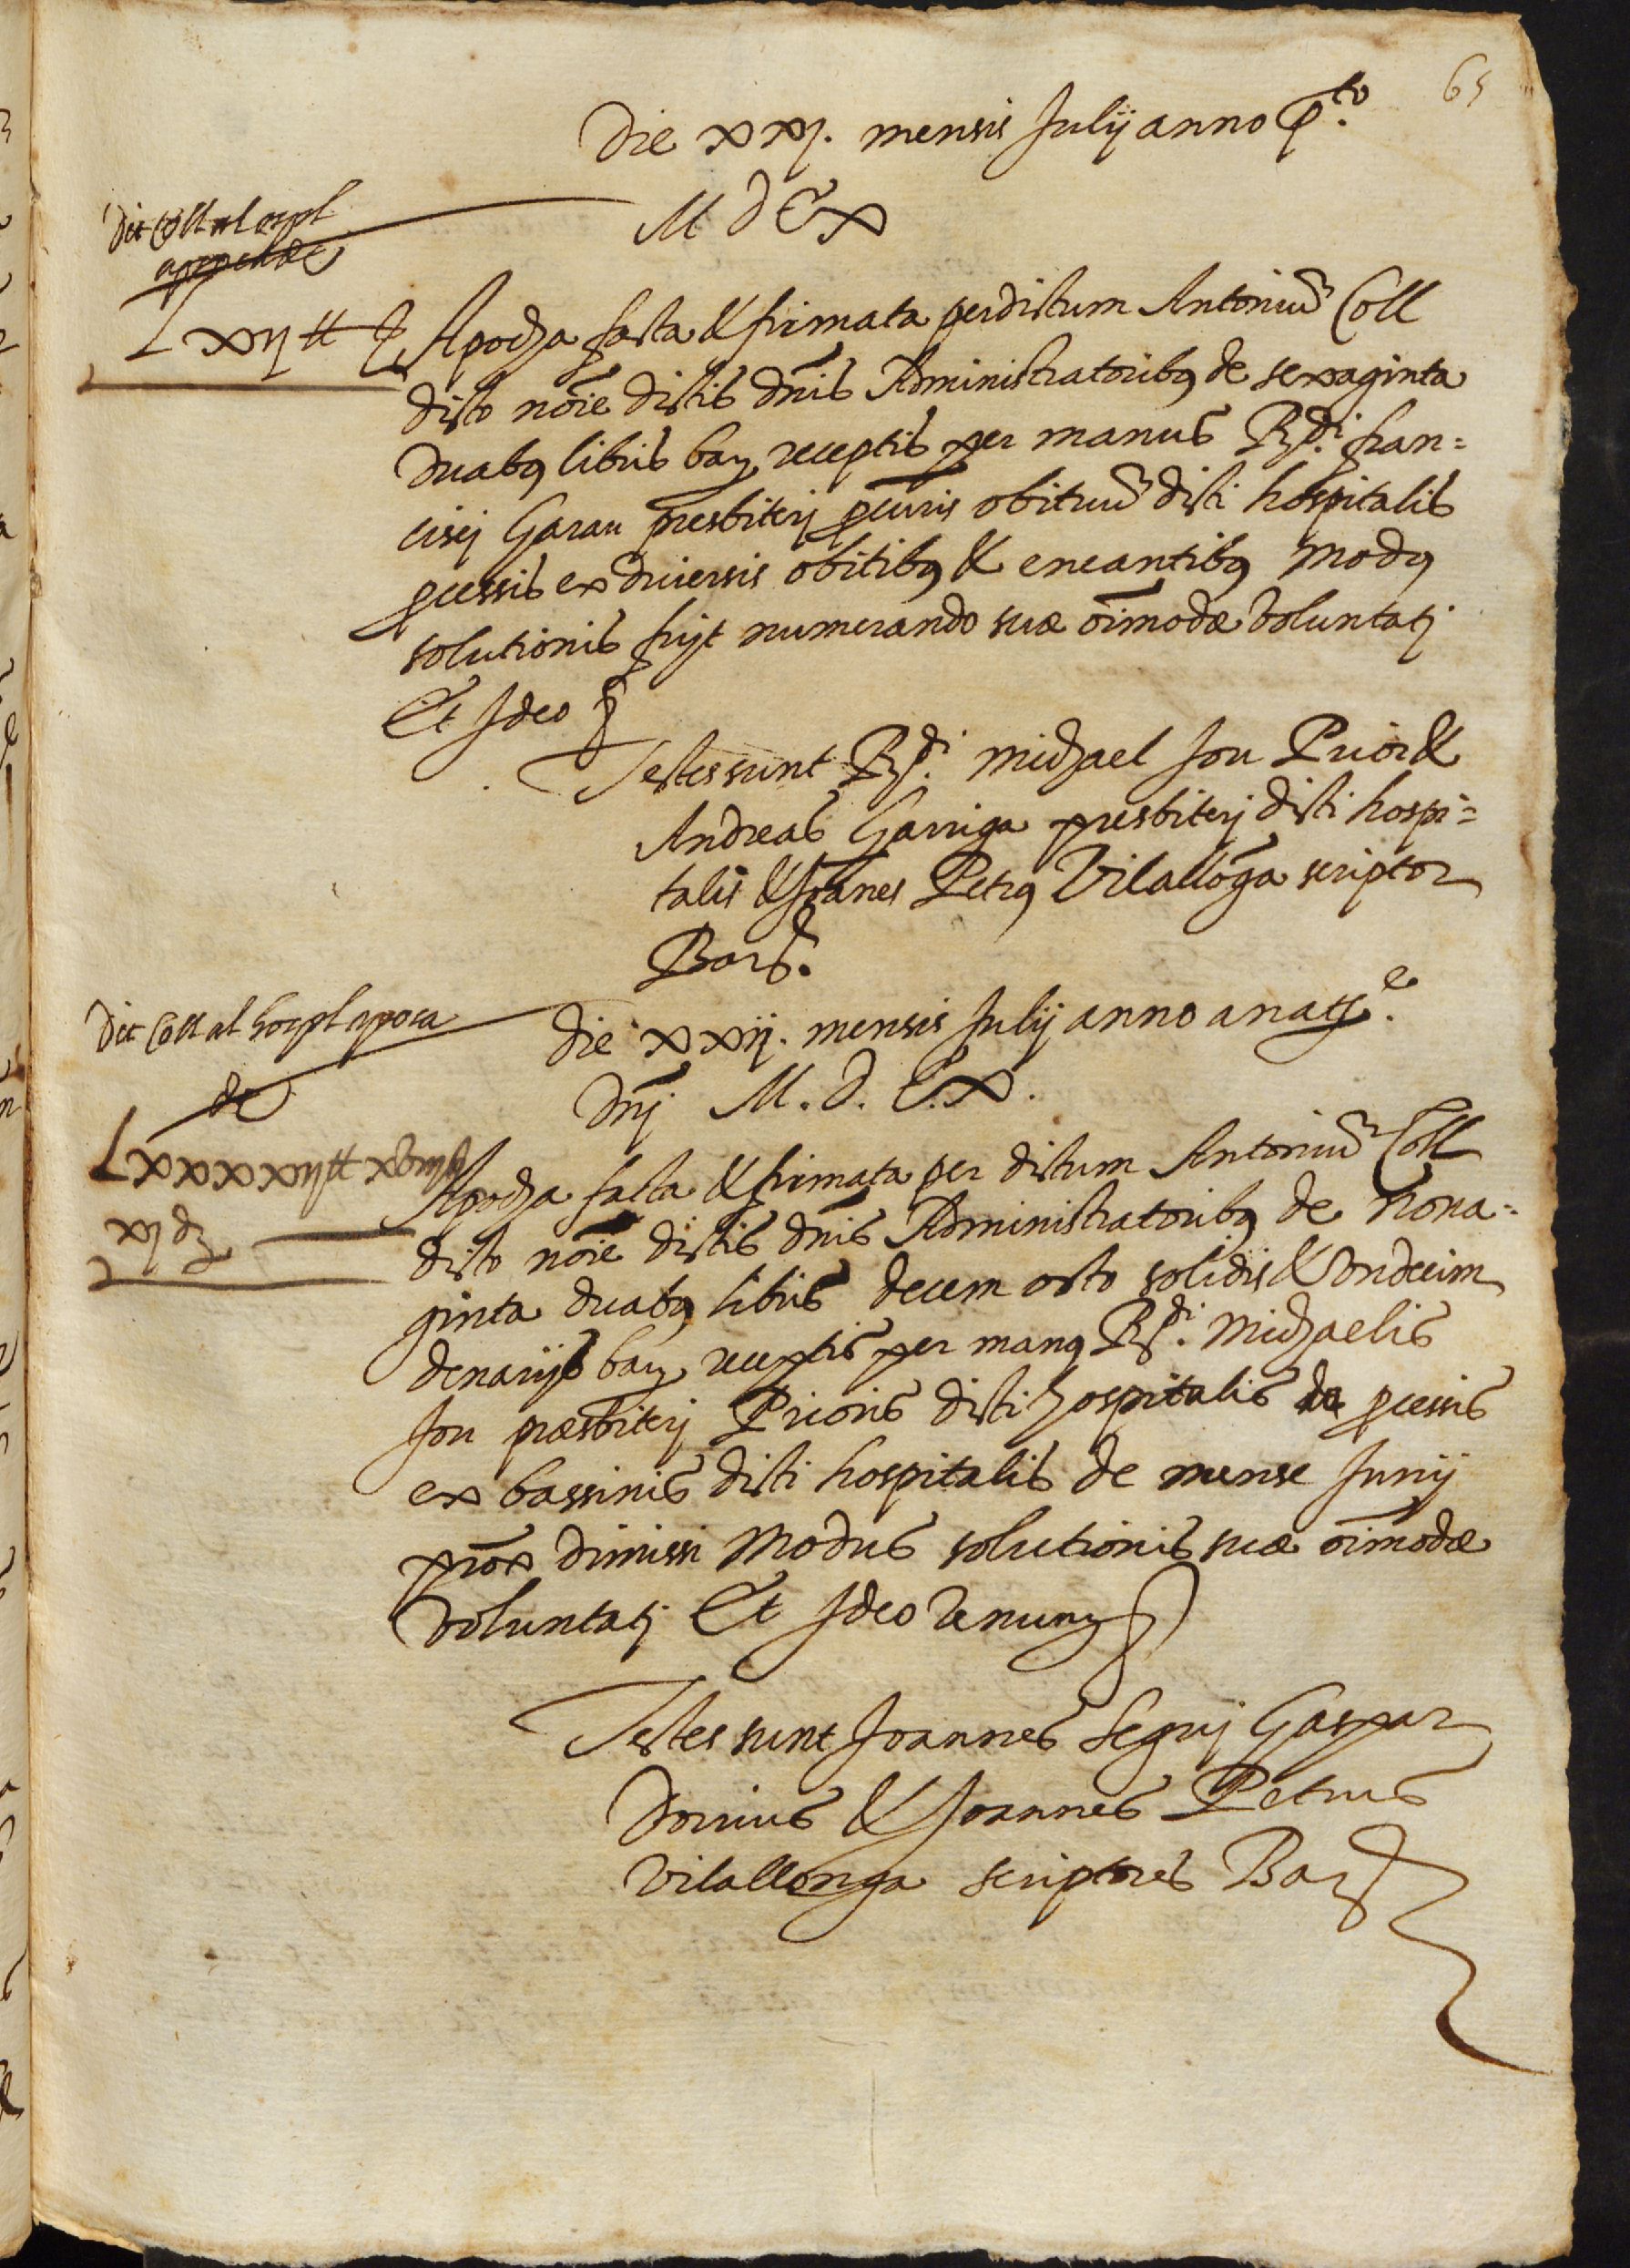 65
Die xxj. mensis Julij anno p.to
M d C x
Dit Coll al ospl
apocha de
Lxij ℔ Apocha facta & firmata per dictum Antoniū Coll
dicto nōie dictis dn̄is Administratoribꝰ de sexaginta
duabꝰ libris bar. receptis per manus R.di fran=
cisci Garau presbiterj ꝓcuris obituū dicti hospitalis
ꝓcessis ex diuersis obitibꝰ & encantibꝰ Modꝰ
solutionis fuit numerando suæ oīmodæ voluntatj
Et Ideo &
Testes sunt R.di Michael Jou Prior &
Andreas Garriga presbiterj dicti hospi=
talis & Joānes Petrꝰ Vilallōga scriptor
Barñ.
Dit Coll al hospl apoca
de
die xxij. mensis Julij anno a nat.e
Dnj M. d. C. x.
Lxxxxij ℔ xviij ß
xj dʒ
Apocha facta & firmata per dictum Antoniū Coll
dicto nōie dictis dn̄is Administratoribꝰ de nona=
ginta duabꝰ libris decem octo solidis & vndecim
denarijs bar. receptis per manꝰ R.di Michaelis
Jou præsbiterj Prioris dicti hospitalis de ꝓcessis
ex bassinis dicti hospitalis de mense Junij
prōx dimissi Modus solutionis suæ oīmodæ
voluntatj Et Ideo renunꝫ &
Testes sunt Joannes Segui Gaspar
Dorius & Joannes Petrus
Vilallonga scriptores Barñ